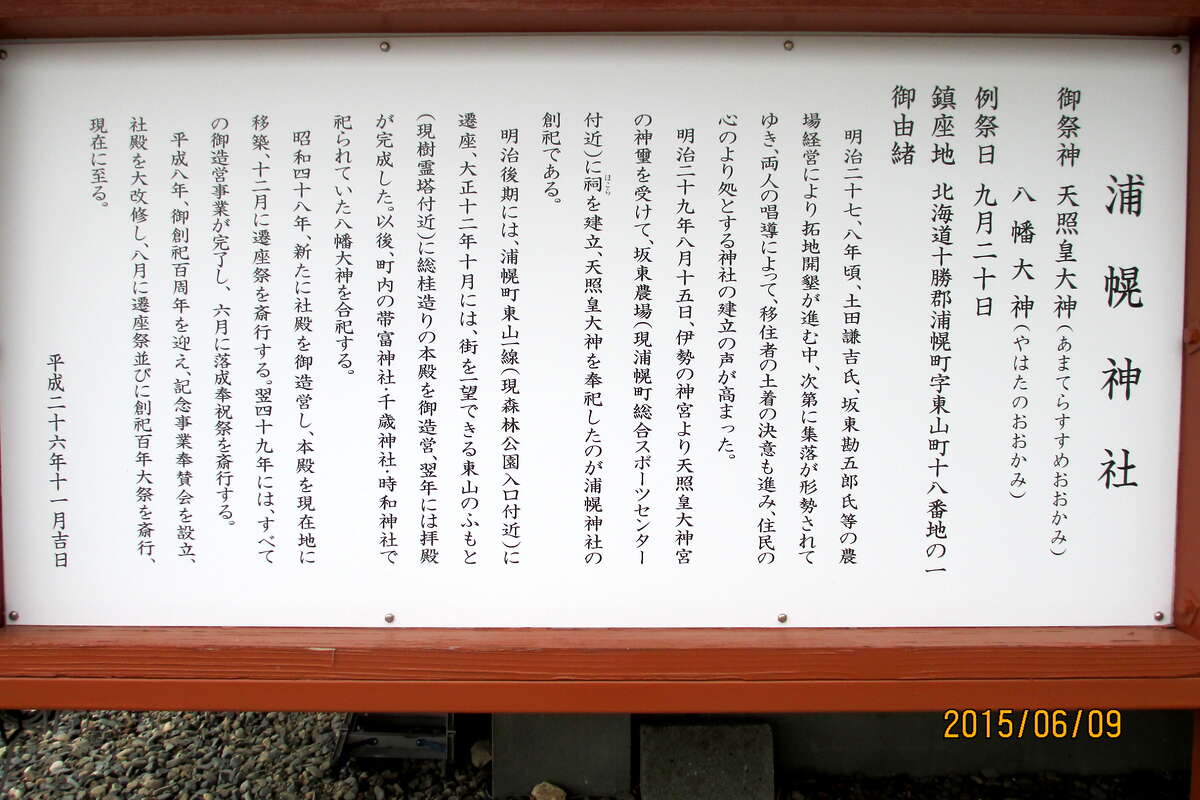 浦幌神社
御祭神 天照皇大神(あまてらすすめおおかみ)
八幡大神(やはたのおおかみ)
例祭日 九月二十日
鎮座地 北海道十勝郡浦幌町字東山町十八番地の一
御由緒
明治二十七、八年頃、土田謙吉氏、坂東勘五郎氏等の農
場経営により拓地開墾が進む中、次第に集落が形勢されて
ゆき、両人の唱導によって、移住者の土着の決意も進み、住民の
心のより処とする神社の建立の声が高まった。
明治二十九年八月十五日、伊勢の神宮より天照皇大神宮
の神璽を受けて、坂東農場(現浦幌町総合スポーツセンター
付近)に祠を建立、天照皇大神を奉祀したのが浦幌神社の
ほこら
創祀である。
明治後期には、浦幌町東山一線(現森林公園入口付近)に
遷座、大正十二年十月には、街を一望できる東山のふもと
(現樹霊塔付近)に総桂造りの本殿を御造営、翌年には拝殿
が完成した。以後、町内の帯富神社・千歳神社・時和神社で
祀られていた八幡大神を合祀する。
昭和四十八年、新たに社殿を御造営し、本殿を現在地に
移築、十二月に遷座祭を斎行する。翌四十九年には、すべて
の御造営事業が完了し、六月に落成奉祝祭を斎行する。
平成八年、御創祀百周年を迎え、記念事業奉賛会を設立、
社殿を大改修し、八月に遷座祭並びに創祀百年大祭を斎行、
現在に至る。
平成二十六年十一月吉日
2015/06/09